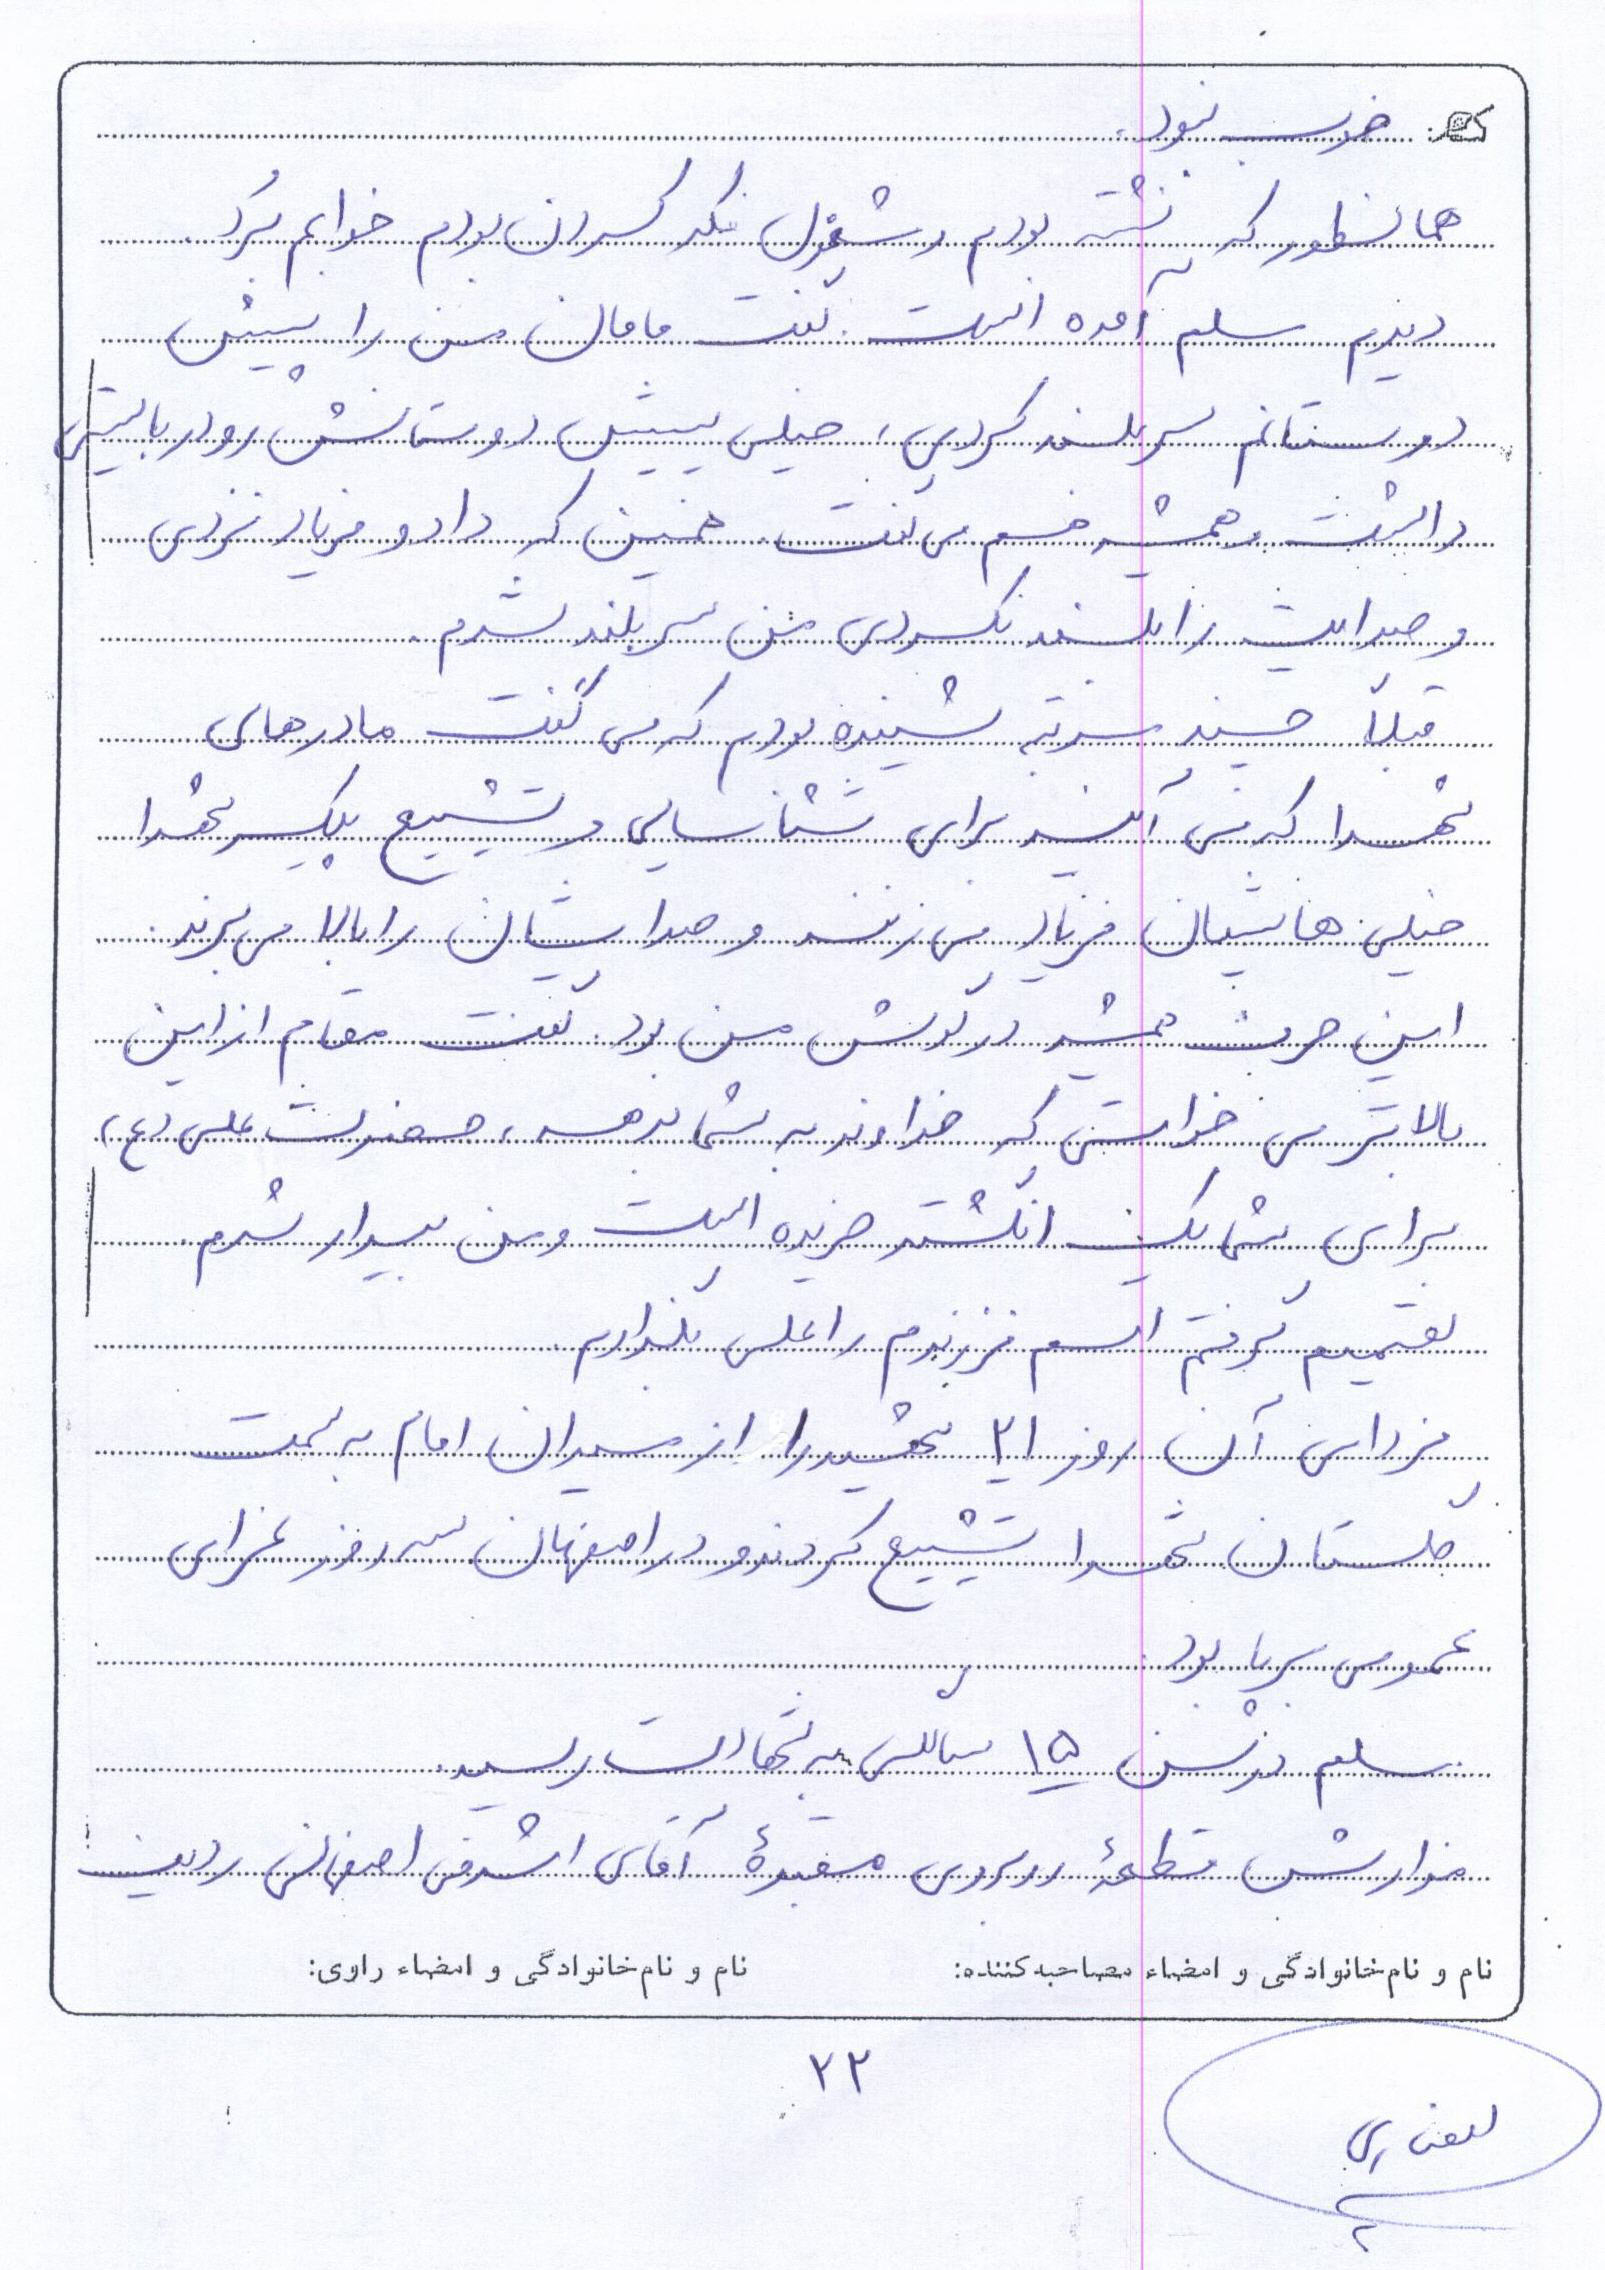 خوب نبود.
همانطور که نشسته بودم و مشغول فکر کردن بودم خوابم بُرد.
دیدم سلم آمده است. گفت مامان من را پیش
دوستانم سربلند کردی، خیلی پیش دوستانش رودربایستی
داشت و همیشه هم می گفت. همین که داد و فریاد نزدی
و صدایت را بلند نکردی من سربلند شدم.
قبلاً چند مرتبه شنیده بودم که می گفت مادرهای
شهدا که می آیند برای شناسایی و تشییع پیکر شهدا
خیلی هایشان فریاد می زنند و صدایشان را بالا می برند.
این حرف همیشه در گوش من بود. گفت مقام از این
بالاتر می خواستی که خداوند به شما بدهد، حضرت علی (ع)
برای شما یک انگشتر خریده است و من بیدار شدم.
تصمیم گرفتم اسم فرزندم را علی بگذارم.
فردای آن روز ۲۱ شهید را از میدان امام به سمت
گلستان شهدا تشییع کردند و در اصفهان سه روز عزای
عمومی برپا بود.
سلم در سن ۱۵ سالگی به شهادت رسید.
مزارش قطعهٔ روبروی مقبرهٔ آقای اشرفی اصفهانی ردیف
نام و نام خانوادگی و امضاء مصاحبه کننده:
نام و نام خانوادگی و امضاء راوی:
۲۲